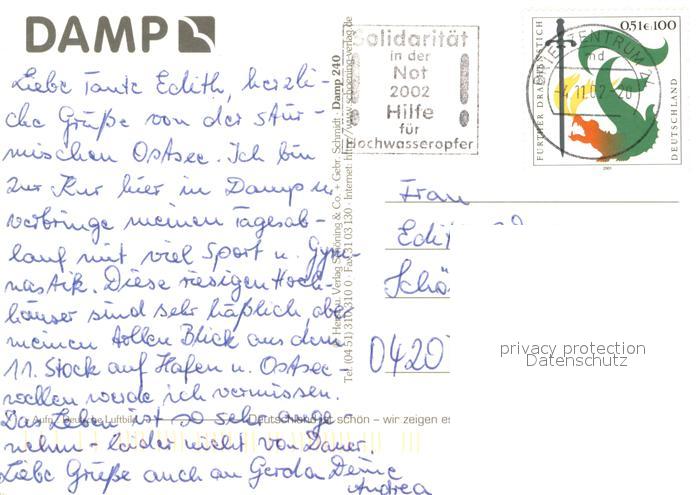 DAMP
Liebe Tante Edith, herzli-
che Grüße von der stür-
mischen Ostsee. Ich bin
zur Kur hier in Damp u.
verbringe meinen Tagesab-
lauf mit viel Sport u. Gym-
nastik. Diese riesigen Hoch-
häuser sind sehr häßlich, aber
meinen tollen Blick aus dem
11. Stock auf Hafen u. Ostsee
wellen werde ich vermissen.
Das Leben ist so sehr ange-
nehm - leider nicht von Dauer.
Liebe Grüße auch an Gerda Deine
Andrea
Aufn.: Deutsche Luftbild
Deutschland ist schön – wir zeigen es
Verlag Schöning & Co. + Gebr. Schmidt · Damp 240
Tel. (04 51) 3 10 31 0 · Fax 31 03 130 · Internet: http://www.schoening-verlag.de
Solidarität
in der
Not
2002
Hilfe
für
Hochwasseropfer
BRIEFZENTRUM 24
md
-4.11.02-20
0,51€ 100
FURTHER DRACHENSTICH
DEUTSCHLAND
2001
Frau
Edi
Schö
0420
privacy protection
Datenschutz